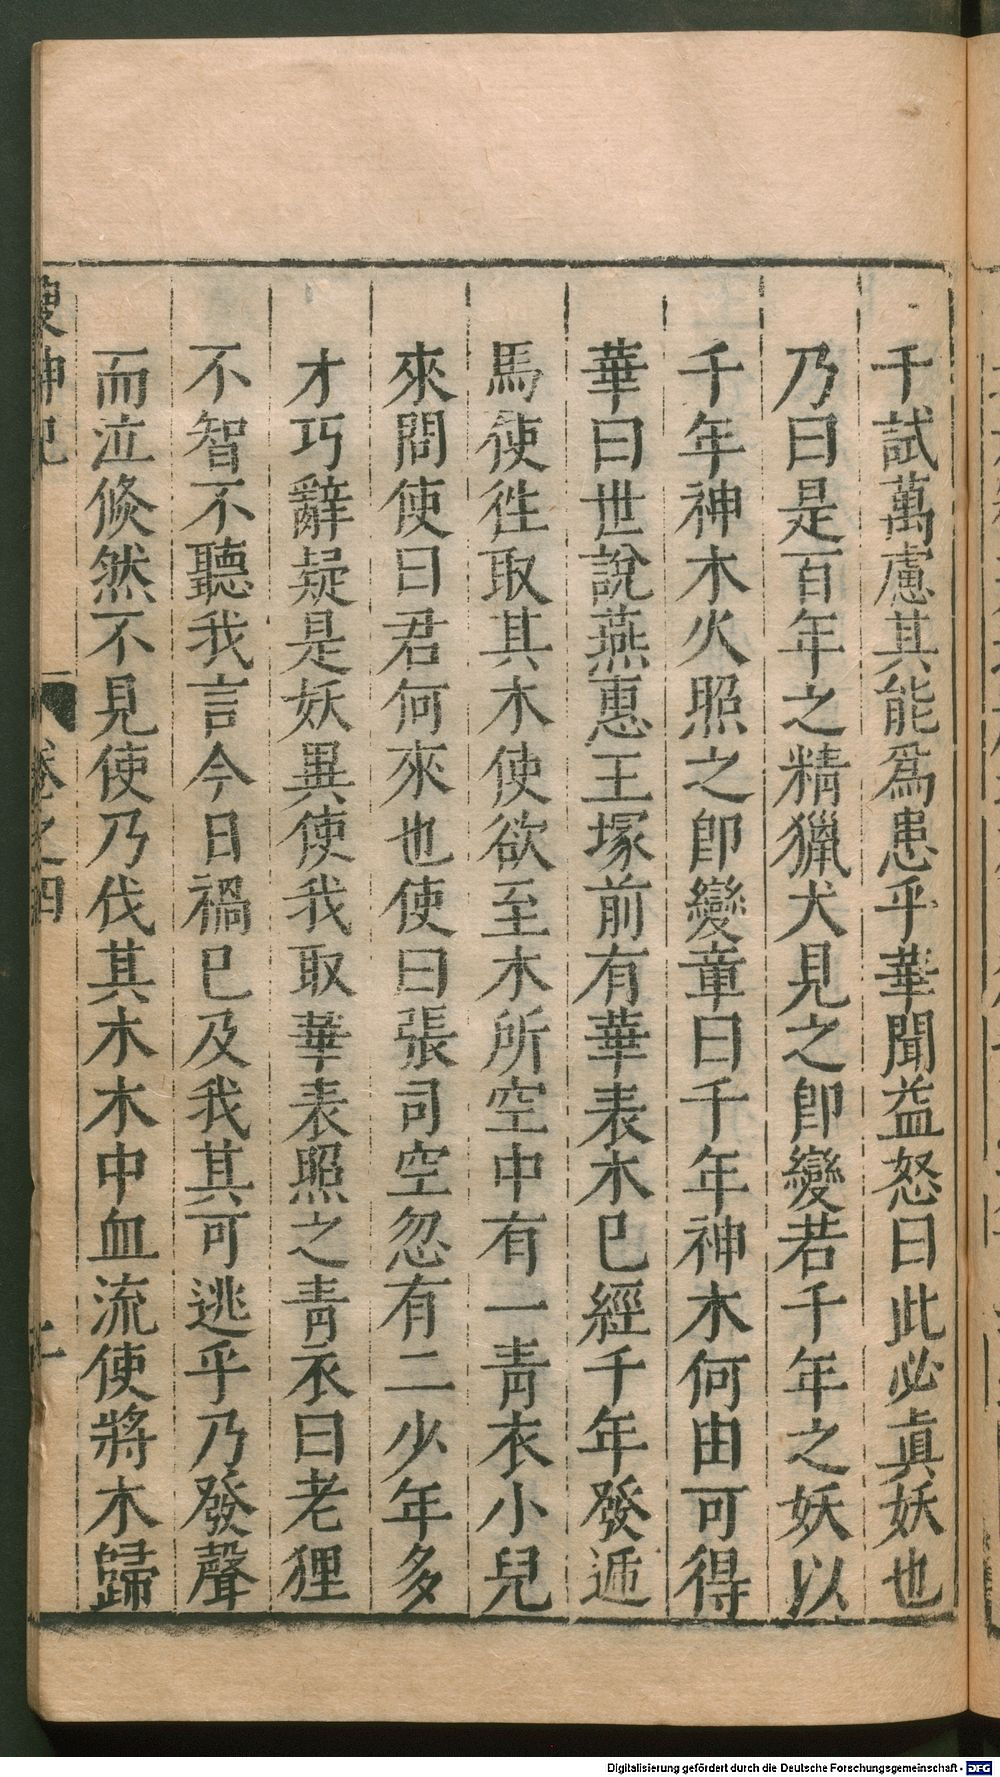 千試萬慮其能爲患乎華聞益怒曰此必眞妖也
乃曰是百年之精獵犬見之卽變若千年之妖以
千年神木火照之卽變童曰千年神木何由可得
華曰世說燕惠王塚前有華表木巳經千年發遞
馬使徃取其木使欲至木所空中有一靑衣小兒
來問使曰君何來也使曰張司空忽有二少年多
才巧辭疑是妖異使我取華表照之靑衣曰老狸
不智不聽我言今日禍巳及我其可逃乎乃發聲
而泣倐然不見使乃伐其木木中血流使將木歸
搜神記 卷之四
Digitalisierung gefördert durch die Deutsche Forschungsgemeinschaft - DFG